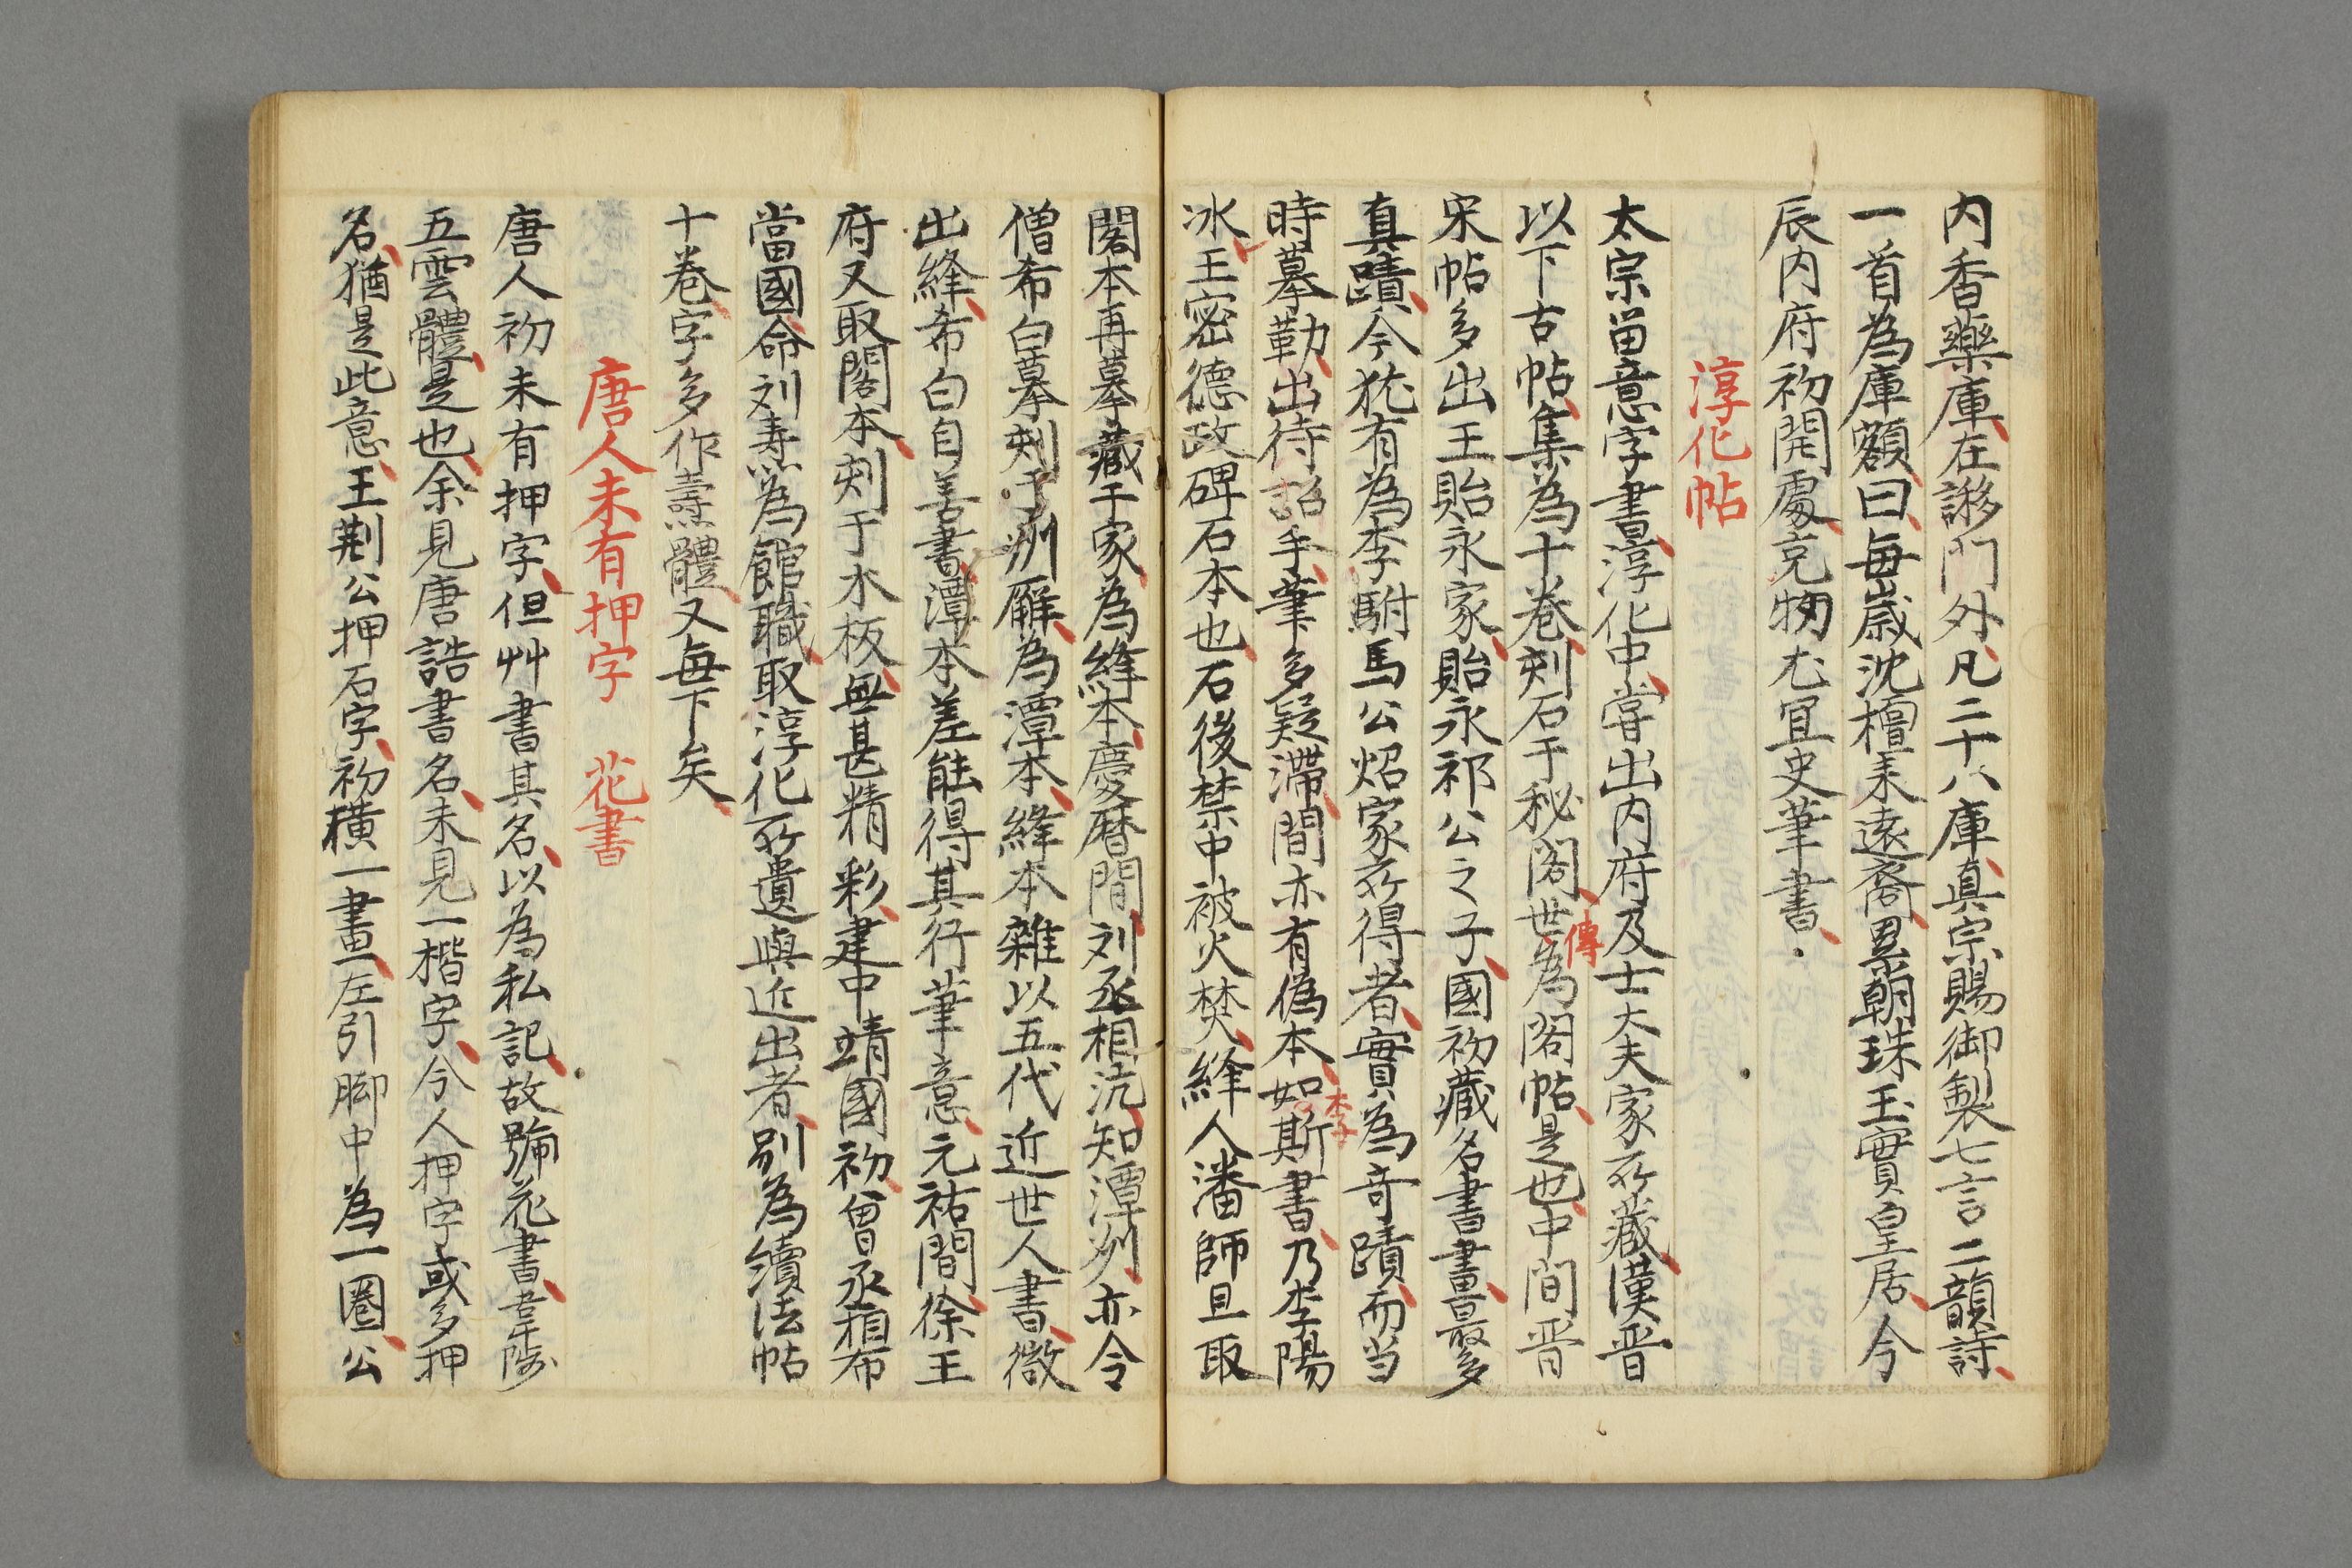 内香藥庫在謻門外凡二十八庫真宗賜御製七言二韻詩
一首為庫額曰每歲沈檀来遠裔累朝珠玉實皇居今
辰内府初開處充牣尤宜史筆書
淳化帖
太宗留意字書淳化中嘗出内府及士大夫家所藏漢晋
以下古帖集為十卷刻石于秘閣世傳為閣帖是也中間晋
宋帖多出王貽永家貽永祁公之子國初藏名書畫最多
真蹟今犹有為李駙馬公炤家所得者實為奇蹟而当
時摹勒出待詔手筆多疑滯間亦有偽本如李斯書乃李陽
冰王密德政碑石本也石後禁中被火焚絳人潘師旦取
閣本再摹藏于家為絳本慶暦間刘丞相沆知潭州亦令
僧希白摹刻于州廨為潭本絳本雜以五代近世人書微
出絳希白自善書潭本差能得其行筆意元祐間徐王
府又取閣本刻于木板無甚精彩建中靖國初曾丞相布
當國命刘燾為館職取淳化所遺與近出者別為續法帖
十卷字多作燾體又每下矣
唐人未有押字 花書
唐人初未有押字但艸書其名以為私記故號花書韋陟
五雲體是也余見唐誥書名未見一楷字今人押字或多押
名猶是此意王荆公押石字初横一畫左引脚中為一圏公